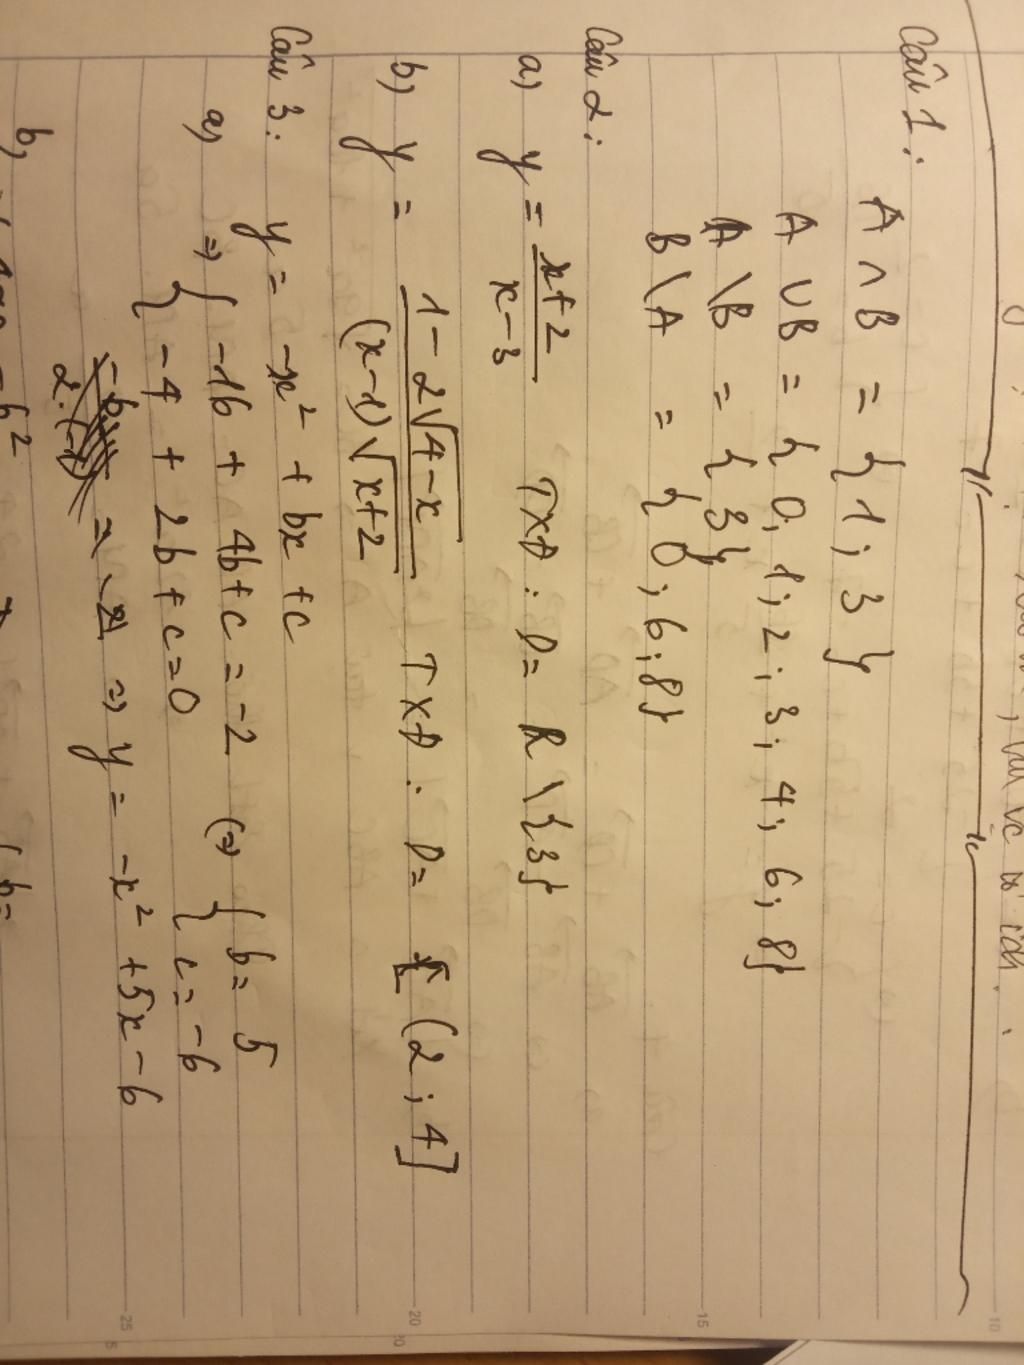 Câu 1:
A ∩ B = { 1; 3 }
A ∪ B = { 0, 1; 2; 3; 4; 6; 8}
A \ B = { 3}
B \ A = { 0; 6; 8}
Câu 2:
a) y = (x+2)/(x-3) TXĐ: D = R \ {3}
b) y = (1 - 2√(4-x))/((x-1)√(x+2)) TXĐ: D = (2; 4]
Câu 3: y = -x² + bx + c
a) => { -16 + 4b + c = -2 (=) { b = 5
{ -4 + 2b + c = 0 { c = -6
=> y = -x² + 5x - 6
b)